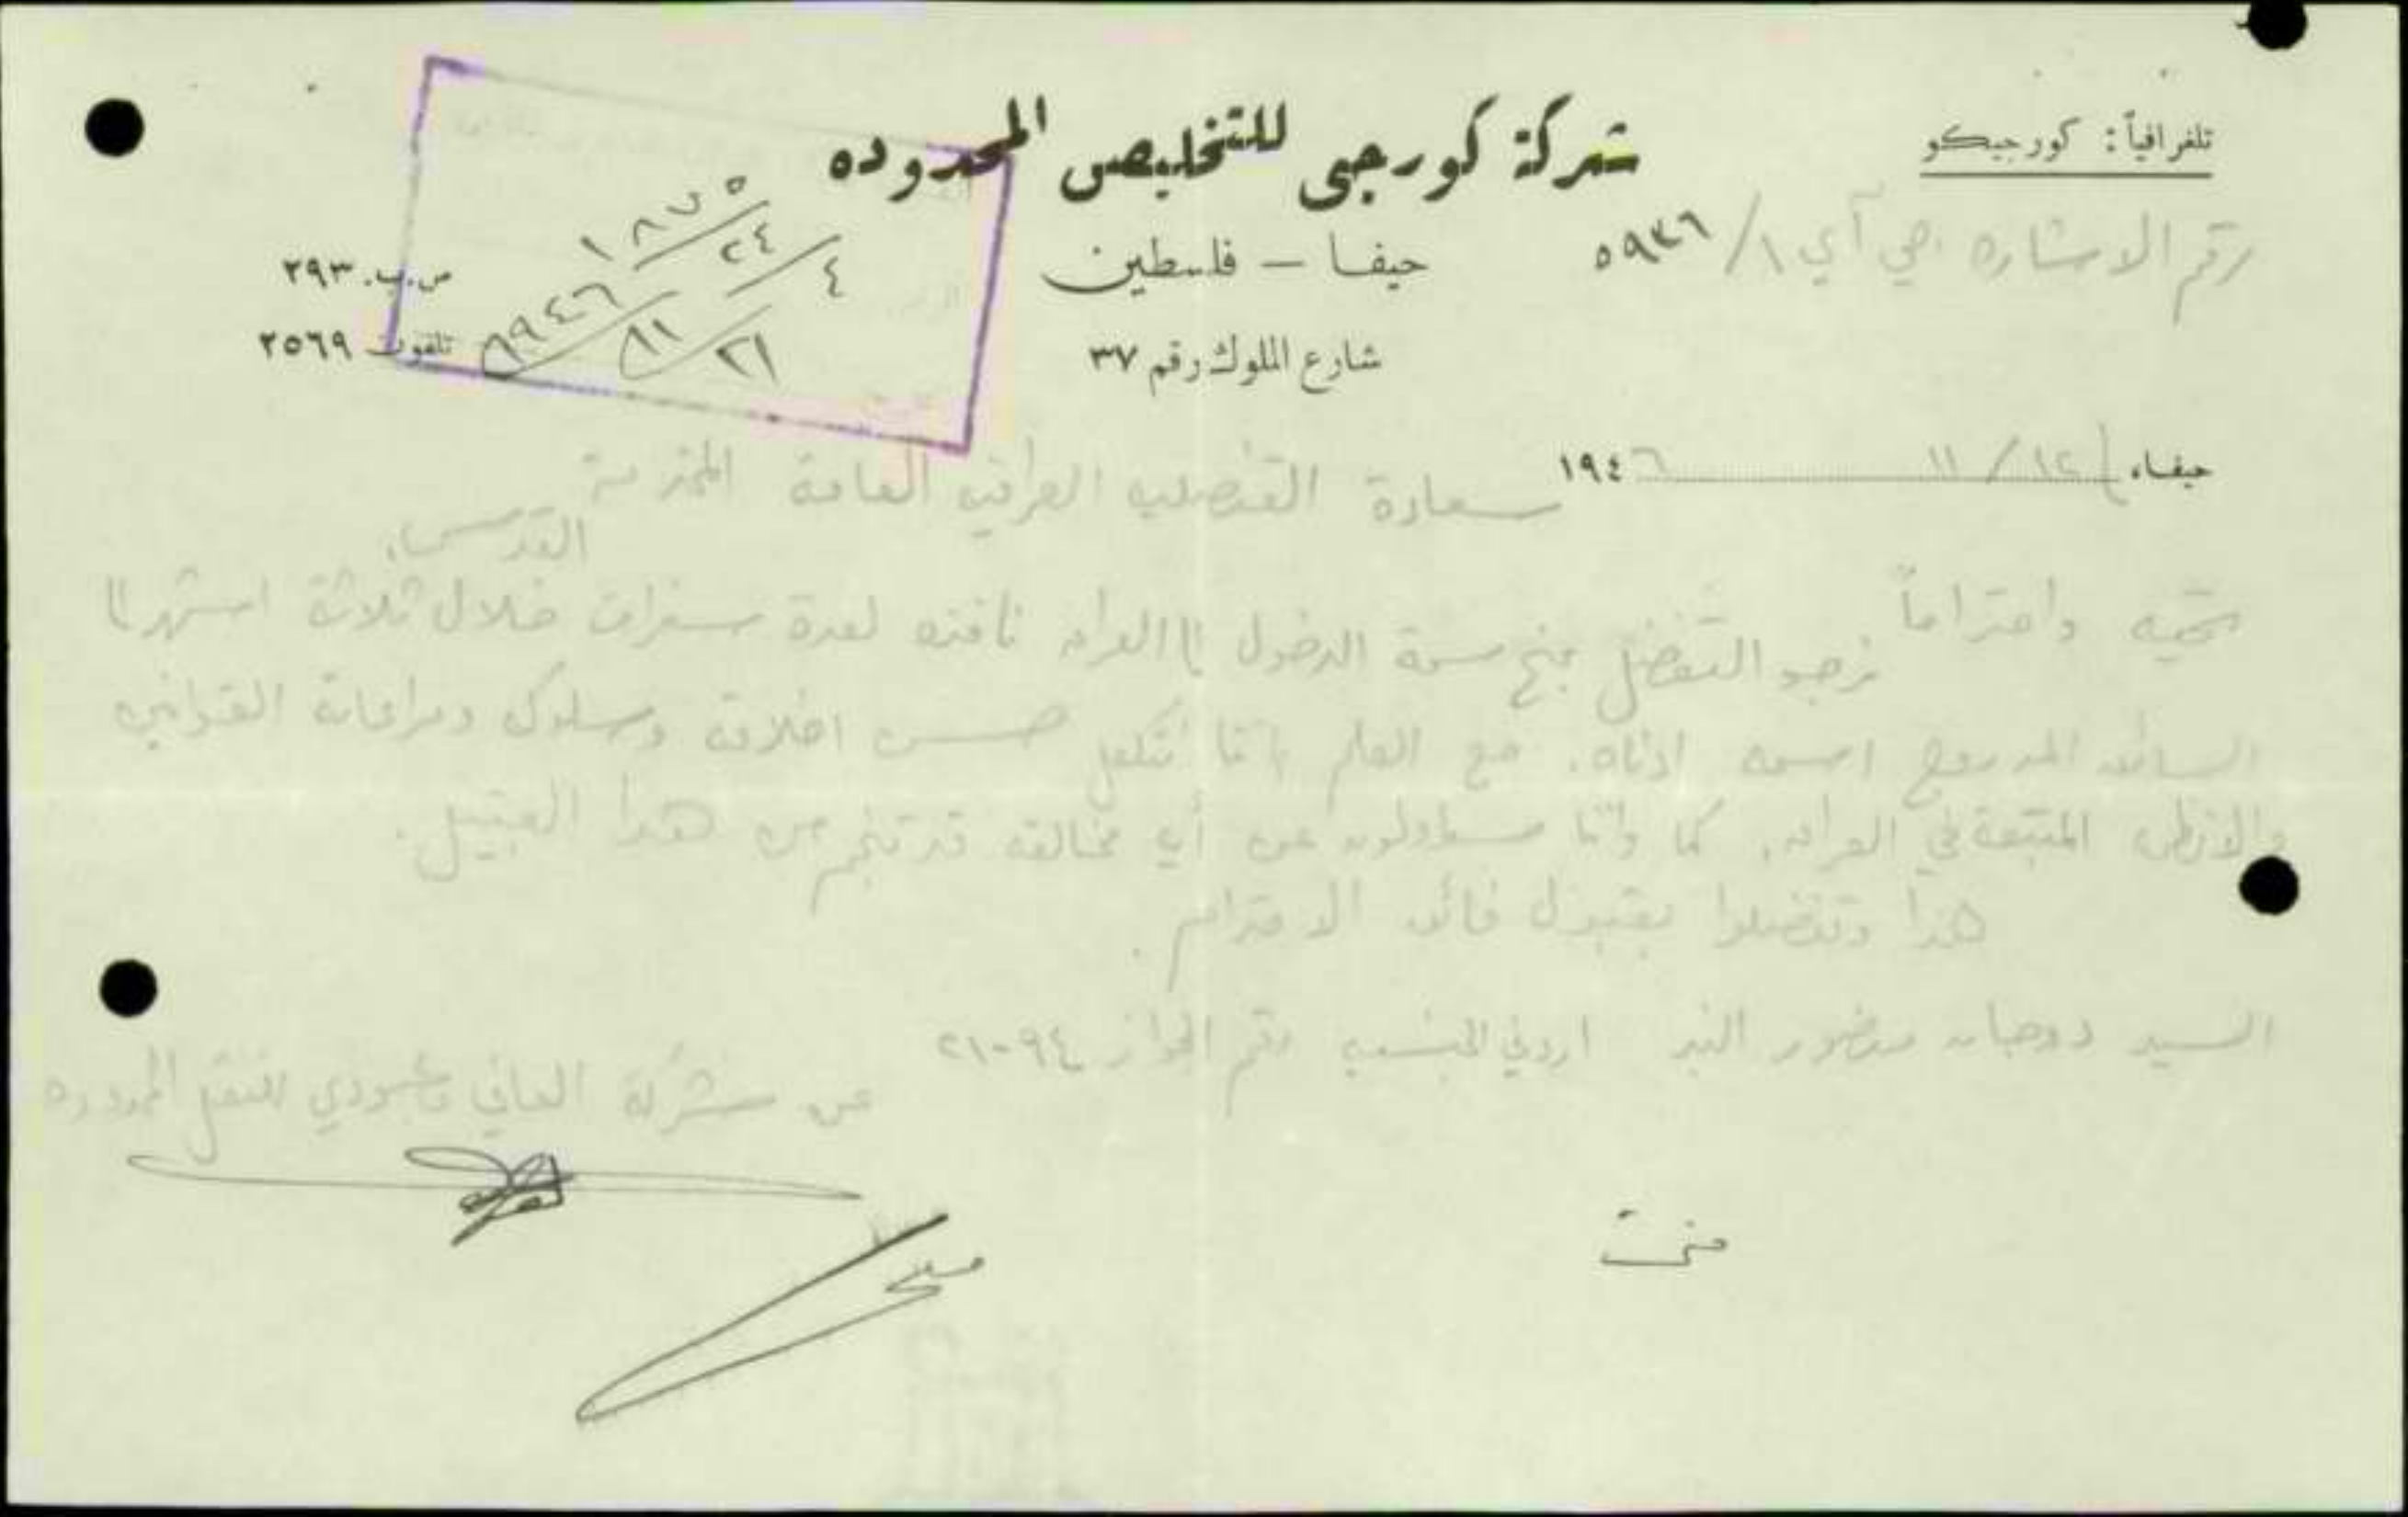 تلغرافياً: كورجيكو
شركة كورجي للتخليص المحدوده
رقم الاشاره جي آي ١/ ٥٩٣٦
حيفا — فلسطين
ص.ب. ٢٩٣
شارع الملوك رقم ٣٧
تلفون ٢٥٦٩
١٨٧٥
٢٤
٤
١٩٤٦
١١
٢١
حيفا، ١١/١٢ ١٩٤٦
سعادة القنصليه العراقيه العامة المحترمة
القدس،
تحيه واحتراماً
نرجو التفضل بمنح سمة الدخول الى العراق نافذه لعدة سفرات خلال ثلاثة اشهر الى
السائق المدروج اسمه ادناه. مع العلم باننا نتكفل حسن اخلاقه وسلوكه ومراعاته القوانين
والانظمه المتبعة في العراق، كما واننا مسؤولون عن أي مخالفه قد تنجم من هذا القبيل.
هذا وتفضلوا بقبول فائق الاحترام.
السيد منصور اردني الجنسيه رقم الجواز ٢١٠٩٤
عن شركة العاني للنقل المحدوده
منحت